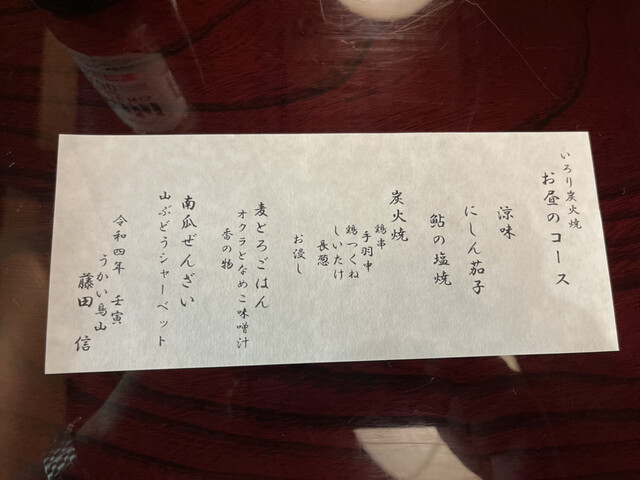 いろり炭火焼
お昼のコース
涼味
にしん茄子
鮎の塩焼
炭火焼
鶏串
手羽中
鶏つくね
しいたけ
長葱
お浸し
麦とろごはん
オクラとなめこ味噌汁
香の物
南瓜ぜんざい
山ぶどうシャーベット
令和四年 壬寅
うかい鳥山
藤田 信